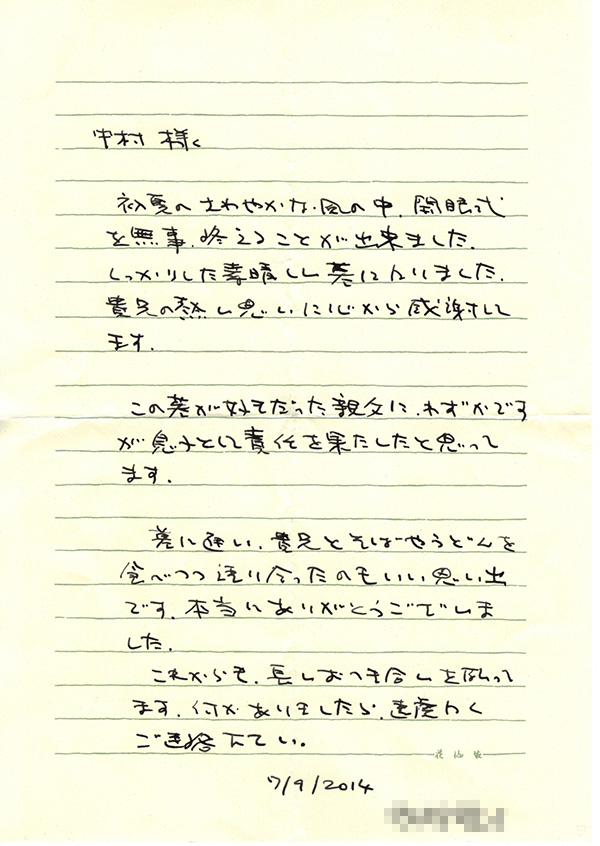 中村 様へ
初夏のさわやかな風の中、開眼式
を無事、終えることが出来ました。
しっかりした素晴しい墓に入りました。
貴兄の熱い思いに心から感謝して
ます。
この墓が好きだった親父に、わずかです
が息子として責任を果たしたと思って
ます。
墓に通い、貴兄とそばやうどんを
食べつつ語り合ったのもいい思い出
です。本当にありがとうございま
した。
これからも、長いおつき合いを願って
ます。何かありましたら、遠慮なく
ご連絡下さい。
7/9/2014